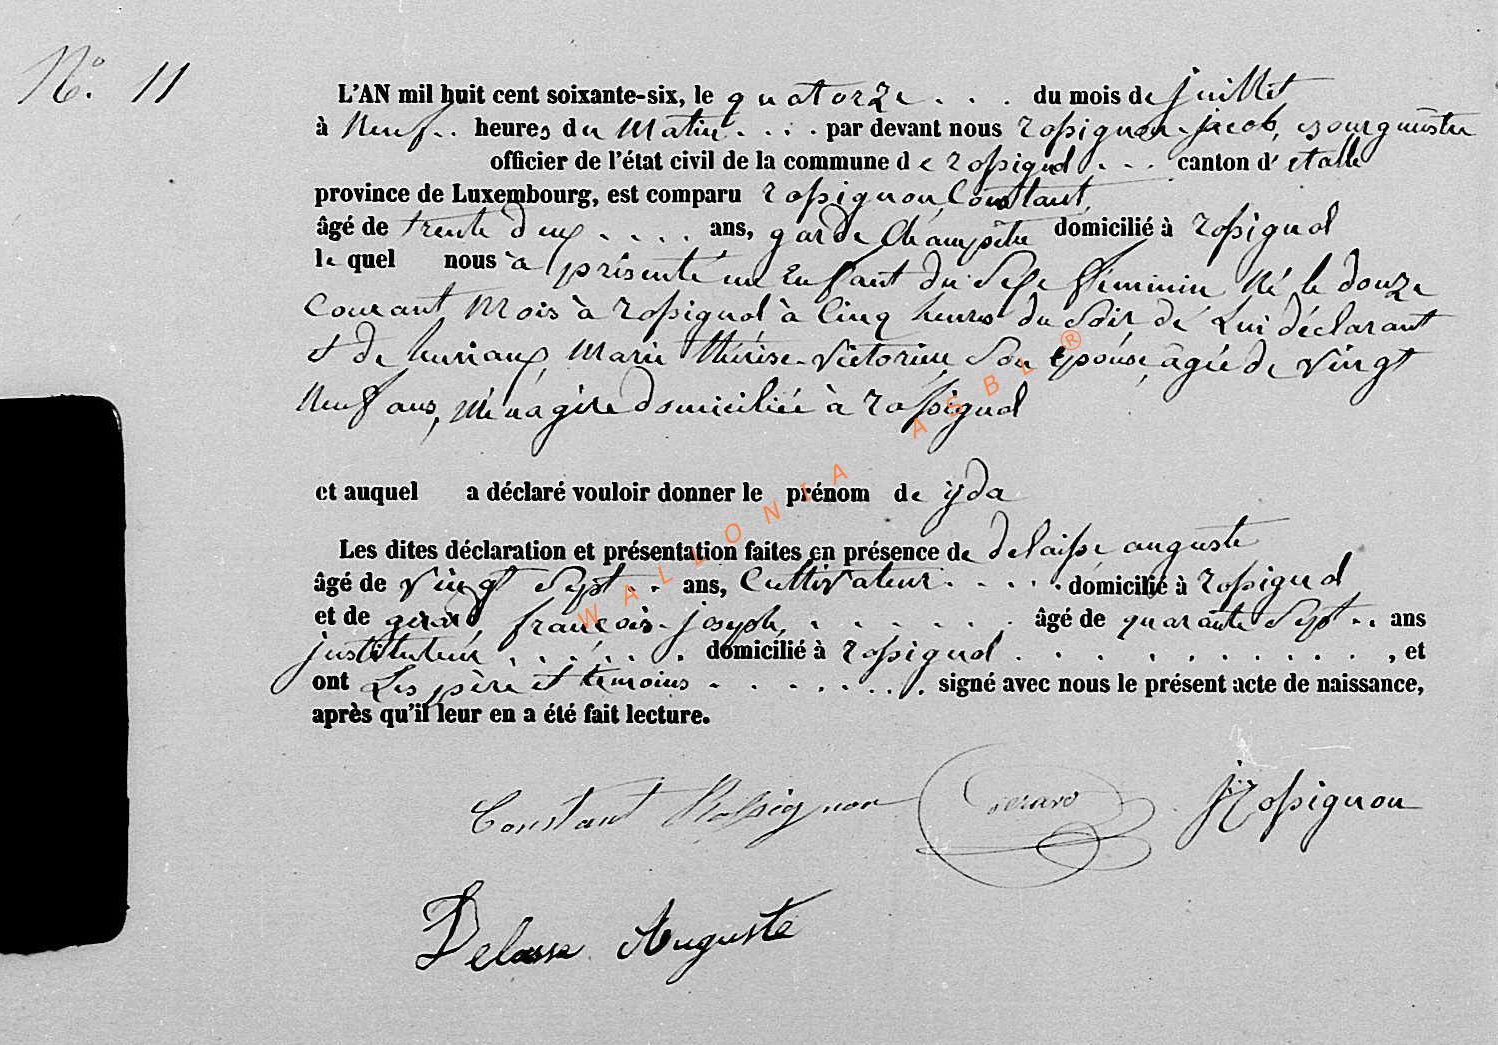 N.° 11
L'AN mil huit cent soixante-six, le quatorze . . . du mois de juillet
à Neuf .. heures du Matin . . . . par devant nous rossignon jacob, bourgmestre
officier de l'état civil de la commune de rossignol . . . canton d'etalle
province de Luxembourg, est comparu rossignon, Constant,
âgé de trente deux . . . . ans, garde Champêtre domicilié à rossignol
lequel nous a présenté un Enfant du Sexe féminin Né le douze
Courant Mois à rossignol à Cinq heures du Soir de Lui déclarant
et de Marie thérèse Victorine Son épouse, âgée de Vingt
Neuf ans, Ménagère domiciliée à rossignol
et auquel a déclaré vouloir donner le prénom de ÿda
Les dites déclaration et présentation faites en présence de delaisse auguste
âgé de Vingt Sept . . ans, Cultivateur . . . . . domicilié à rossignol
et de gerard françois-joseph, . . . . . . . âgé de quarante Sept . . ans
justituteur . . . . . . domicilié à rossignol . . . . . . . . . . . , et
ont Les père et témoins . . . . . . . . signé avec nous le présent acte de naissance,
après qu'il leur en a été fait lecture.
Constant Rossignon Gerard JRossignon
Delasse Auguste
WALLONIA ASBL ®